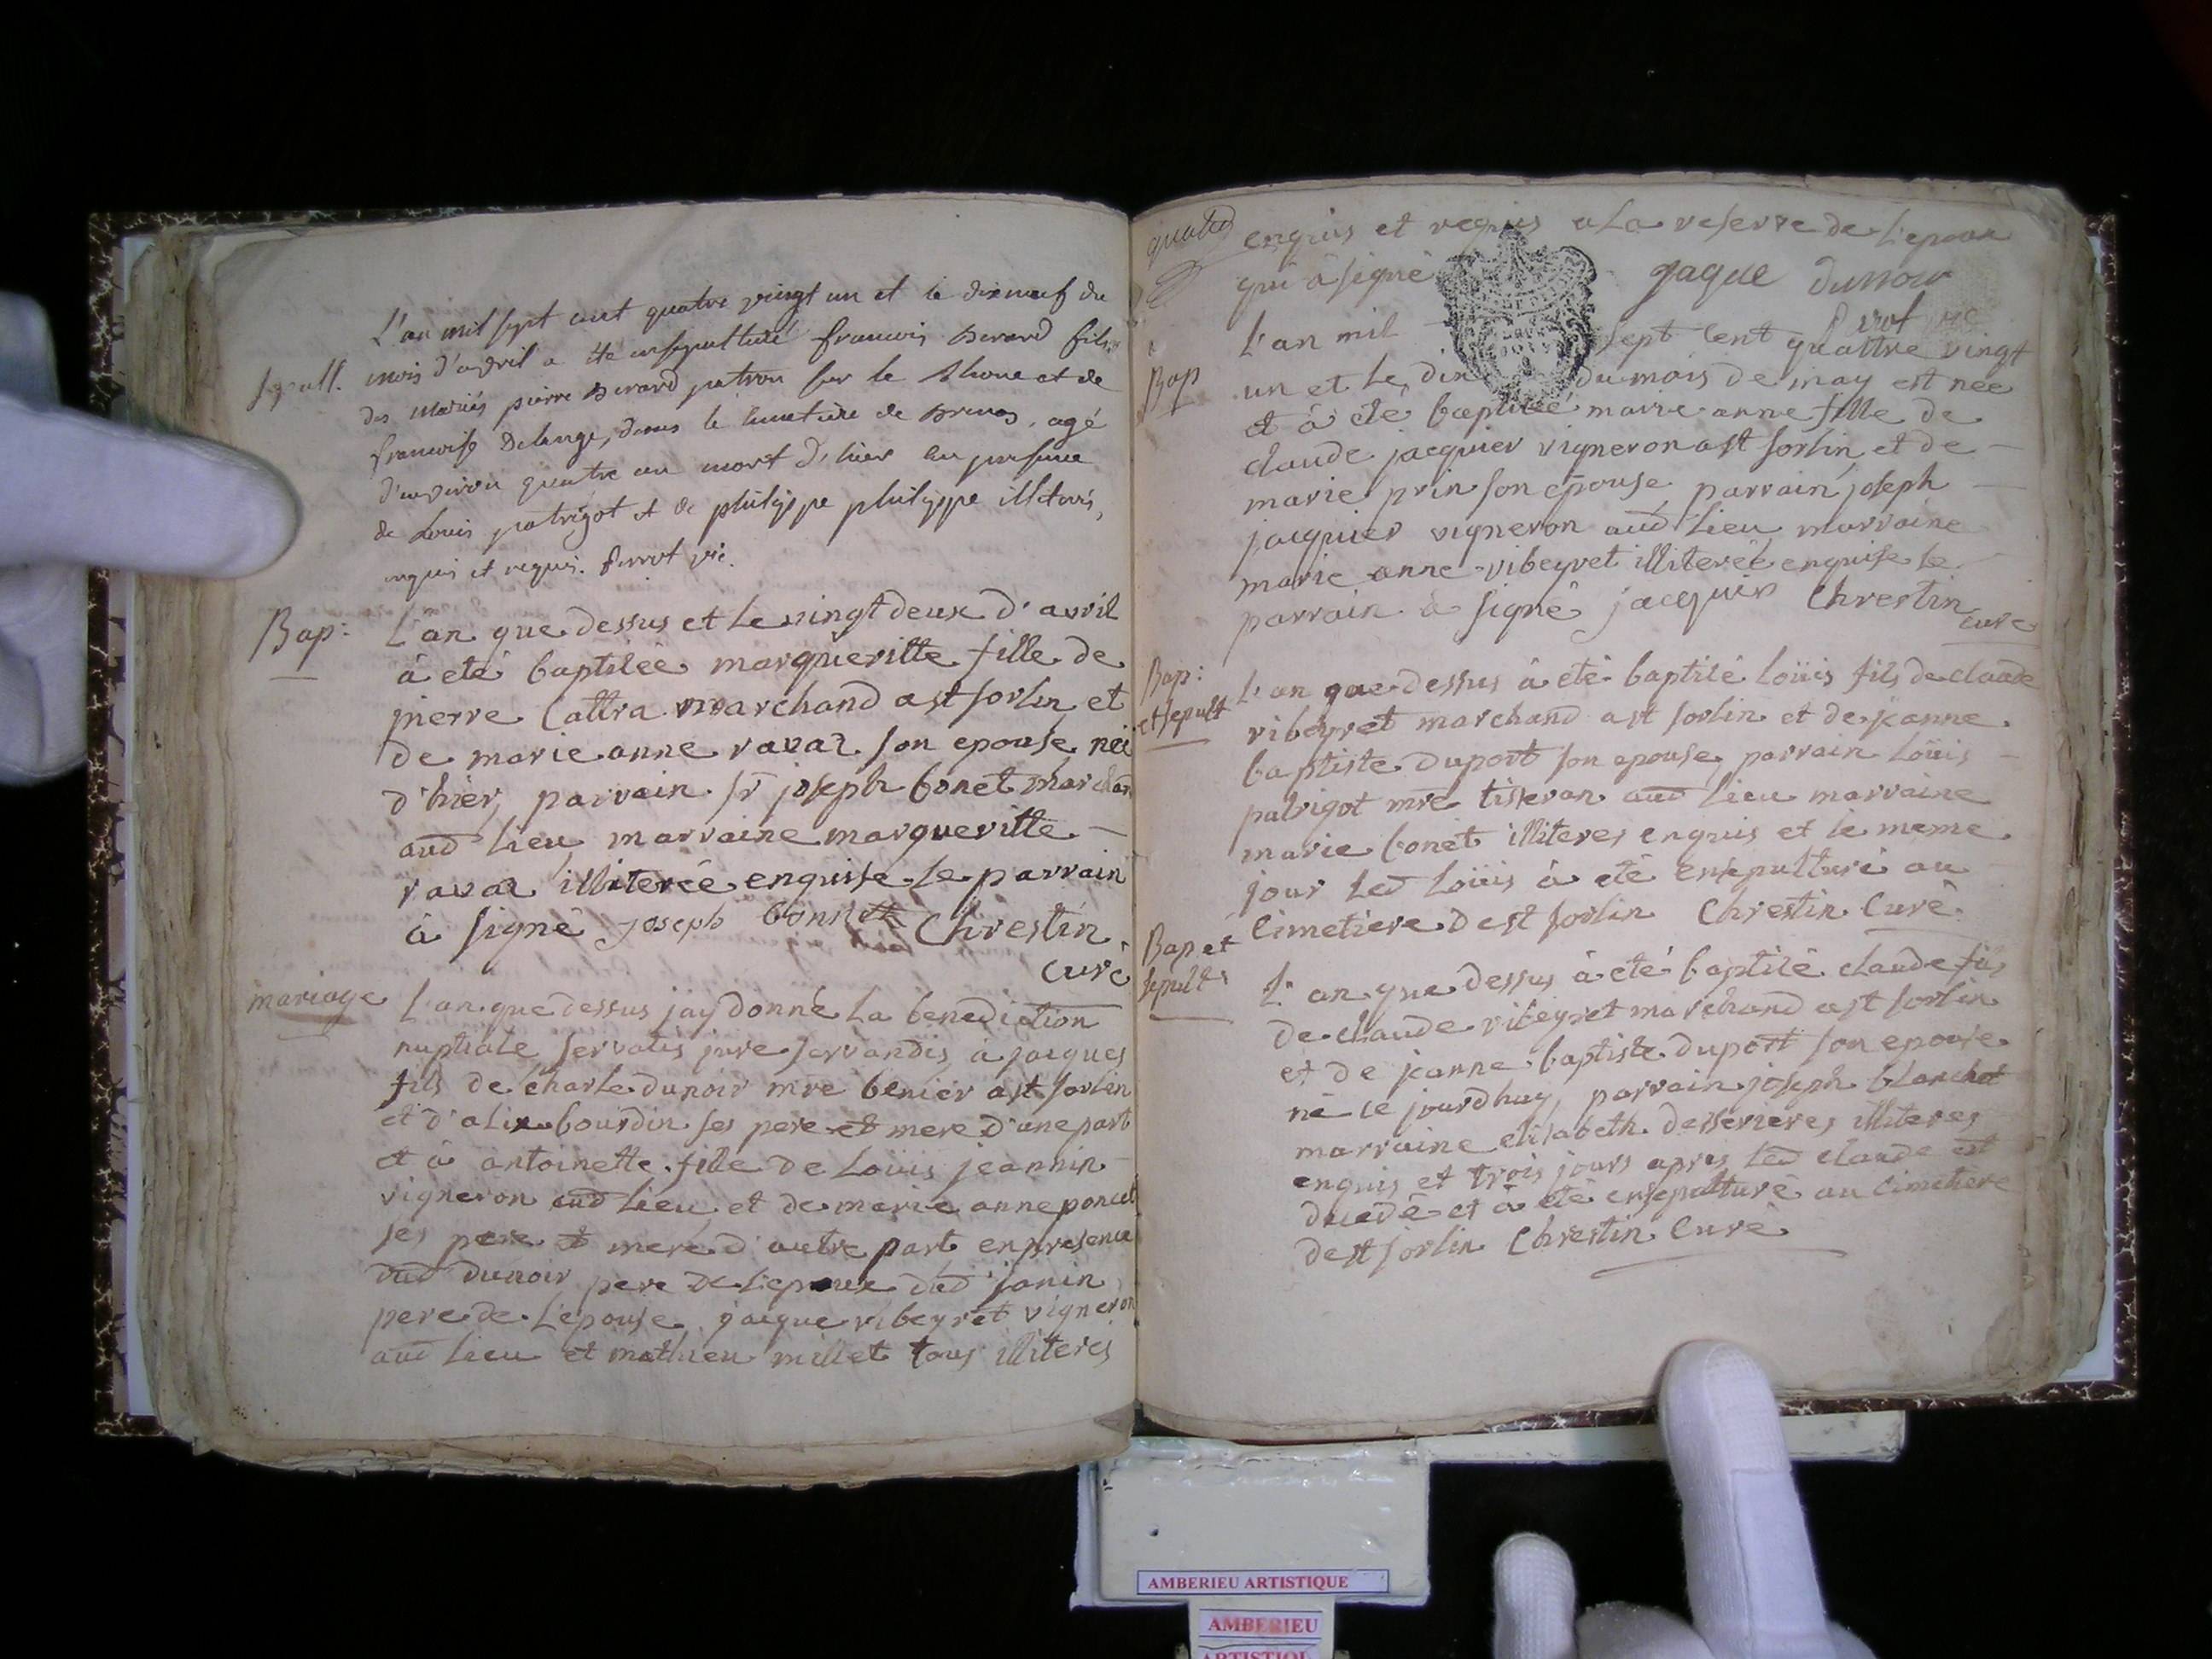 L'an mil sept cent quatre vingt un et le dixneuf du
sepult. mois d'avril a été ensepulturé francois Berard fils
des mariés pierre Berard patron sur le Rhone et de
francoise Delange, dans le cimetiere de Brenas, agé
d'environ quatre an mort d'hier en presence
de Louis patrigot et de philippe philippe illiterés,
enquis et requis. Perrot vic.
Bap: L'an que dessus et le vingt deux d'avril
à eté baptisèe margueritte fille de
pierre Cattra marchand a st sorlin et
de marie anne ravaz son epouse neé
d'hier, parrain sr joseph bonet marchan
aud lieu marraine margueritte
ravaz illiterèe enquise le parrain
à signè joseph bonnet Chrestin
curè
mariage L'an que dessus jay donné La benediction
nuptiale servatis jure servandis à jacques
fils de charle dunoir mre benier a st sorlin
et d'alix bourdin ses pere et mere d'une part
et à antoinette fille de Loüis jeannin
vigneron aud lieu et de marie anne poncet
ses pere et mere d'autre part en presence
dud dunoir pere de L'epoux dud janin
pere de L'epouse jacque ribeyret vigneron
aud lieu et mathieu millet tous illiterés
quatre enquis et requis a La reserve de L'epoux
qui à signé jaque dunoir
Perrot vic
L'an mil sept cent quattre vingt
Bap un et le dix du mois de may est neé
et à eté baptiseé marie anne fille de
claude jacquier vigneron a st sorlin et de
marie prin son epouse parrain joseph
jacquier vigneron aud lieu marraine
marie anne ribeyret illitereé enquise le
parrain à signè jacquier Chrestin
curè
Bap: L'an que dessus à eté baptisé Loüis fils de claude
et sepult ribeyret marchand a st sorlin et de jeanne
baptiste duport son epouse, parrain Loüis
patrigot mre tisseran aud lieu marraine
marie bonet illiteres enquis et le meme
jour led Loüis à eté ensepulturé au
Cimetiere de st sorlin Chrestin Curè
Bap et
sepult L'an que dessus à eté baptisé claude fils
de claude ribeyret marchand a st sorlin
et de jeanne baptiste duport son epouse
né ce jourdhuy, parrain joseph blanchet
marraine elisabeth desserieres illiteres
enquis et trois jours apres led claude est
decedè et à eté ensepulturè au cimetiere
de st sorlin Chrestin Curè
AMBERIEU ARTISTIQUE
AMBERIEU
ARTISTIQUE